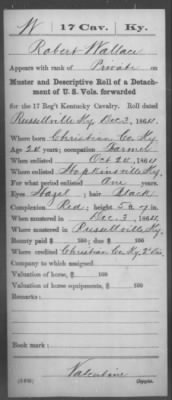 W | 17 Cav. | Ky.
Robert Wallace
Appears with rank of Private on
Muster and Descriptive Roll of a Detach-
ment of U. S. Vols. forwarded
for the 17 Reg't Kentucky Cavalry. Roll dated
Russellville Ky. Dec. 3, 1864.
Where born Christian Co. Ky.
Age 24 years; occupation Farmer
When enlisted Oct 24, 1864.
Where enlisted Hopkinsville Ky.
For what period enlisted One years.
Eyes Hazel; hair Black
Complexion Red; height 5 ft. in.
When mustered in Dec. 3, 1864.
Where mustered in Russellville Ky.
Bounty paid $ 100; due $ 100
Where credited Christian Co. Ky. 2"
Company to which assigned
Valuation of horse, $ 100
Valuation of horse equipments, $ 100
Remarks:
Book mark:
Valentine
Copyist.